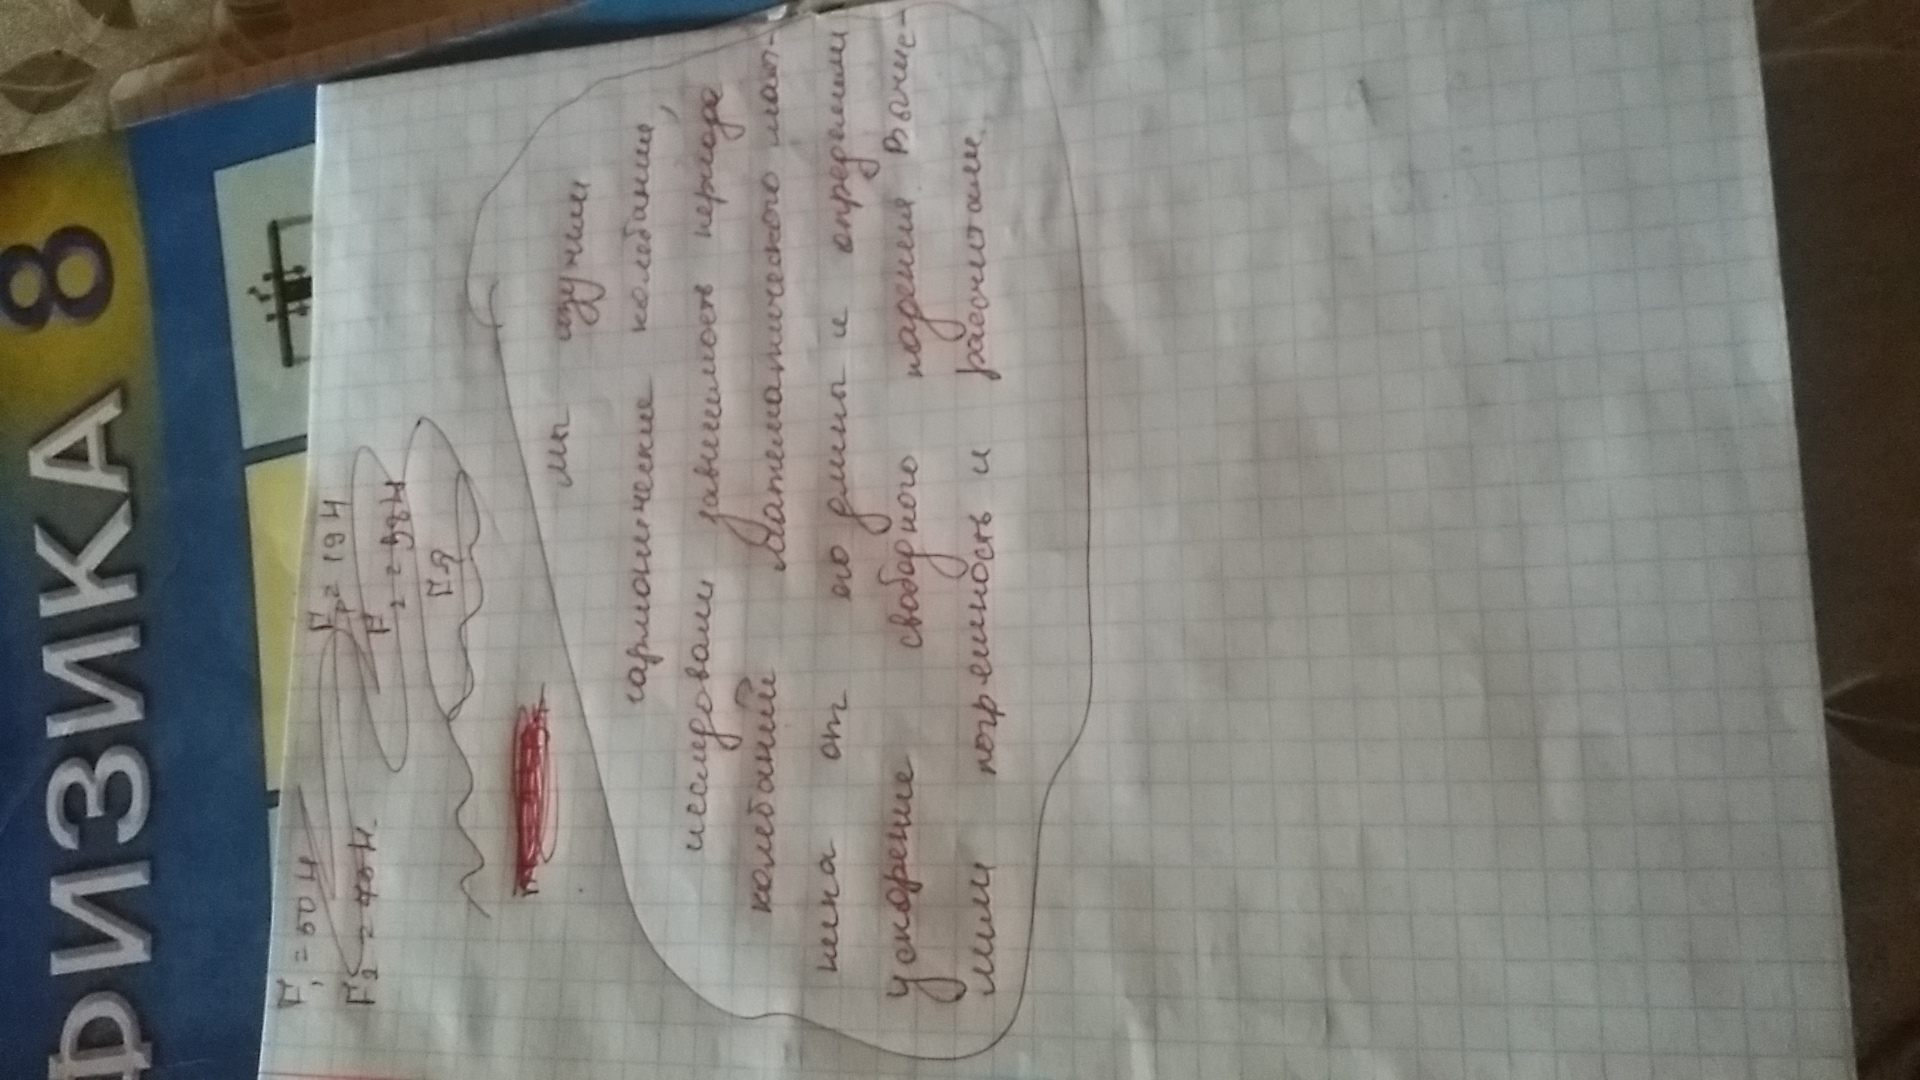 ФИЗИКА 8
F₁ = 50 Н
Fр = 19 Н
мы изучили
гармонические колебание,
исследовали зависимость периода
колебаний математического маят-
ника от его длины и определили
ускорение свободного падения Вычис-
лили погрешность и рассчитали